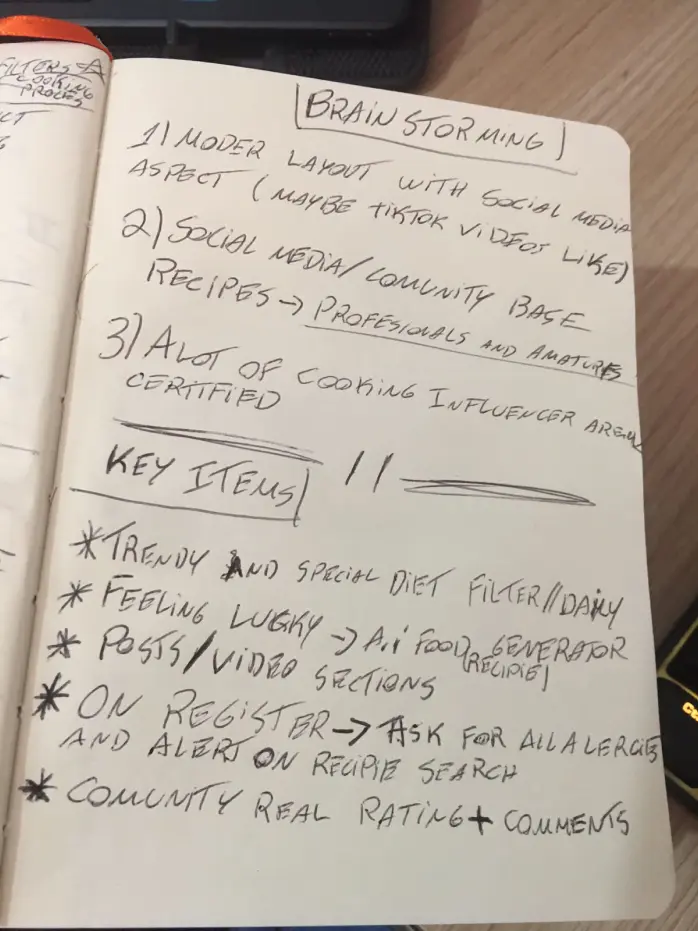 FILTERS
COOKING
PROCES
BRAIN STORMING
1) MODER LAYOUT WITH SOCIAL MEDIA
ASPECT (MAYBE TIKTOK VIDEOS LIKE)
2) SOCIAL MEDIA/COMUNITY BASE
RECIPES → PROFESIONALS AND AMATURES
3) A LOT OF COOKING INFLUENCER AREN
CERTIFIED
KEY ITEMS //
* TRENDY AND SPECIAL DIET FILTER // DAILY
* FEELING LUGKY → A.i FOOD GENERATOR
(RECIPIE)
* POSTS/VIDEO SECTIONS
* ON REGISTER → ASK FOR ALL ALERGIES
AND ALERT ON RECIPIE SEARCH
* COMUNITY REAL RATING + COMMENTS